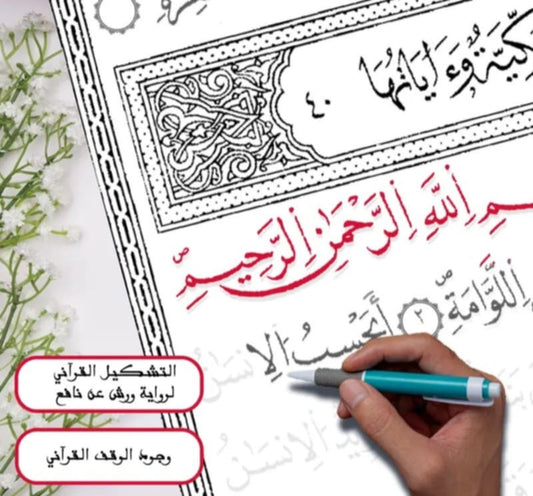 وَءَايَاتُهَا ٤٠
اِللَّهِ اِلرَّحْمَٰنِ اِلرَّحِيمِ
اِللَّوَّامَةِ ٢ أَيَحْسِبُ اَلاِنسَٰنُ
اُلاِنسَٰنُ
التشكيل القرآني
لرواية ورش عن نافع
وجود الوقف القرآني